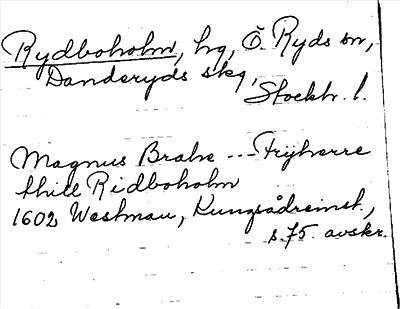 Rydboholm, hg, Ö. Ryds sn,
Danderyds skg,
Stockh. l.
Magnus Brahe --- Fryherre
thill Ridboholm
1602 Westman, Kungsådremst.,
s. 75. avskr.